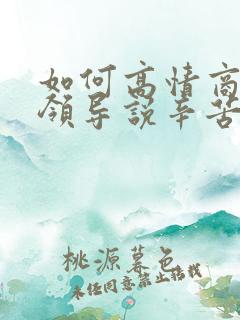 如何高情商
领导说辛苦
桃源暮色
未经同意禁止搭载